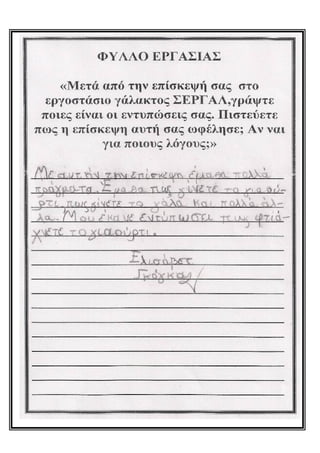 ΦΥΛΛΟ ΕΡΓΑΣΙΑΣ
«Μετά από την επίσκεψή σας στο
εργοστάσιο γάλακτος ΣΕΡΓΑΛ,γράψτε
ποιες είναι οι εντυπώσεις σας. Πιστεύετε
πως η επίσκεψη αυτή σας ωφέλησε; Αν ναι
για ποιους λόγους;»
Με αυτήν την επίσκεψη έμαθα πολλά
πράγματα. Έμαθα πως γίνετε το γιαού-
ρτι, πως γίνετε το γάλα και πολλά άλ-
λα. Μου έκανε εντύπωσει πως φτιά-
χνετε το γιαούρτι.
Ελισάβετ